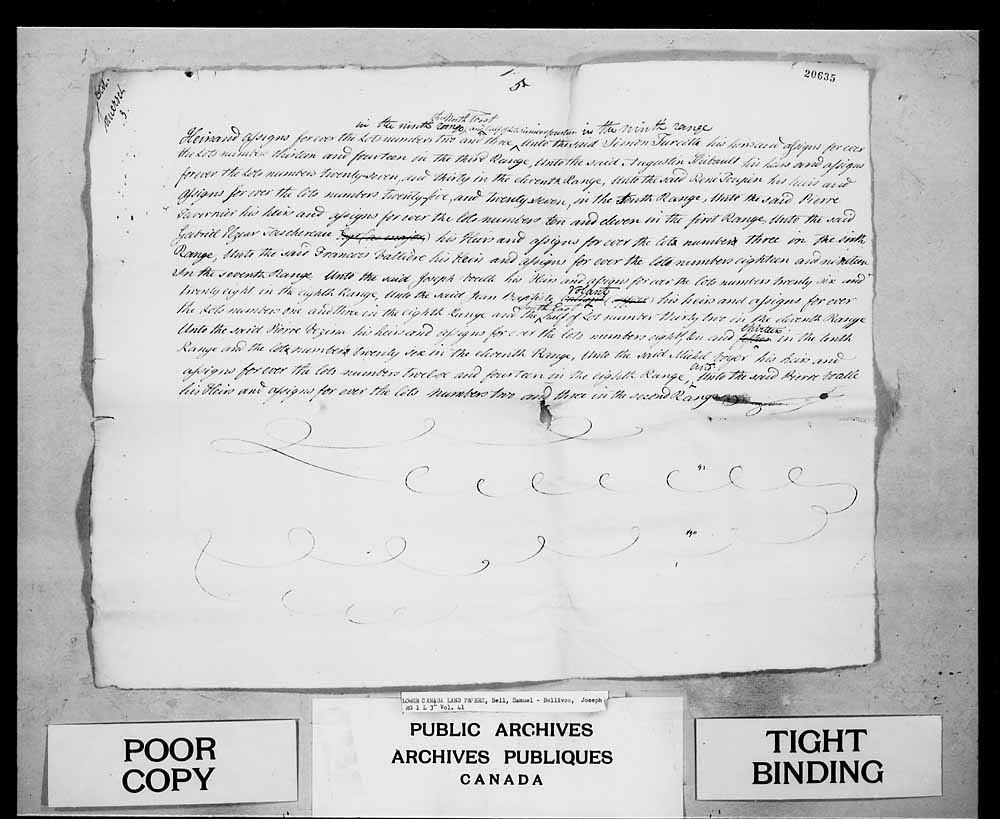 20635
5
in the ninth range, the North West half of lot number fourteen in the ninth range
Heirs and assigns for ever the Lots numbers two and three, Unto the said Simon Turcotte his heirs and assigns for ever
the Lots number thirteen and fourteen in the third Range, Unto the said Augustin Thibault his heirs and assigns
forever the Lots numbers twenty-seven, and thirty in the eleventh Range, Unto the said René Toupin his heirs and
assigns for ever the lots numbers twenty-five, and twenty seven, in the tenth Range, Unto the said Pierre
Tavernier his heirs and assigns for ever the lots numbers ten and eleven in the first Range, Unto the said
Gabriel Elzear Taschereau his Heirs and assigns for ever the lots numbers three in the sixth
Range, Unto the said Francois Vallière his Heirs and assigns for ever the lots numbers eighteen and nineteen
In the seventh Range Unto the said Joseph Vocelle his Heirs and assigns for ever the lots numbers twenty six and
twenty eight in the eighth Range, Unto the said Jean Baptiste Volant his heirs and assigns for ever
the Lots numbers one and three in the eighth Range and the South East half of Lot number thirty two in the eleventh Range
Unto the said Pierre Vezina his heirs and assigns for ever the lots numbers eight, ten and thirteen in the tenth
Range and the lots numbers twenty six in the eleventh Range, Unto the said Michel Voyer his Heirs and
assigns for ever the lots numbers twelve and fourteen in the eighth Range, and Unto the said Pierre Voelle
his Heirs and assigns for ever the lots numbers two and three in the second Range
LOWER CANADA LAND PAPERS, Bell, Samuel - Bellivou, Joseph
RG 1 L 3" Vol. 41
PUBLIC ARCHIVES
ARCHIVES PUBLIQUES
CANADA
POOR
COPY
TIGHT
BINDING